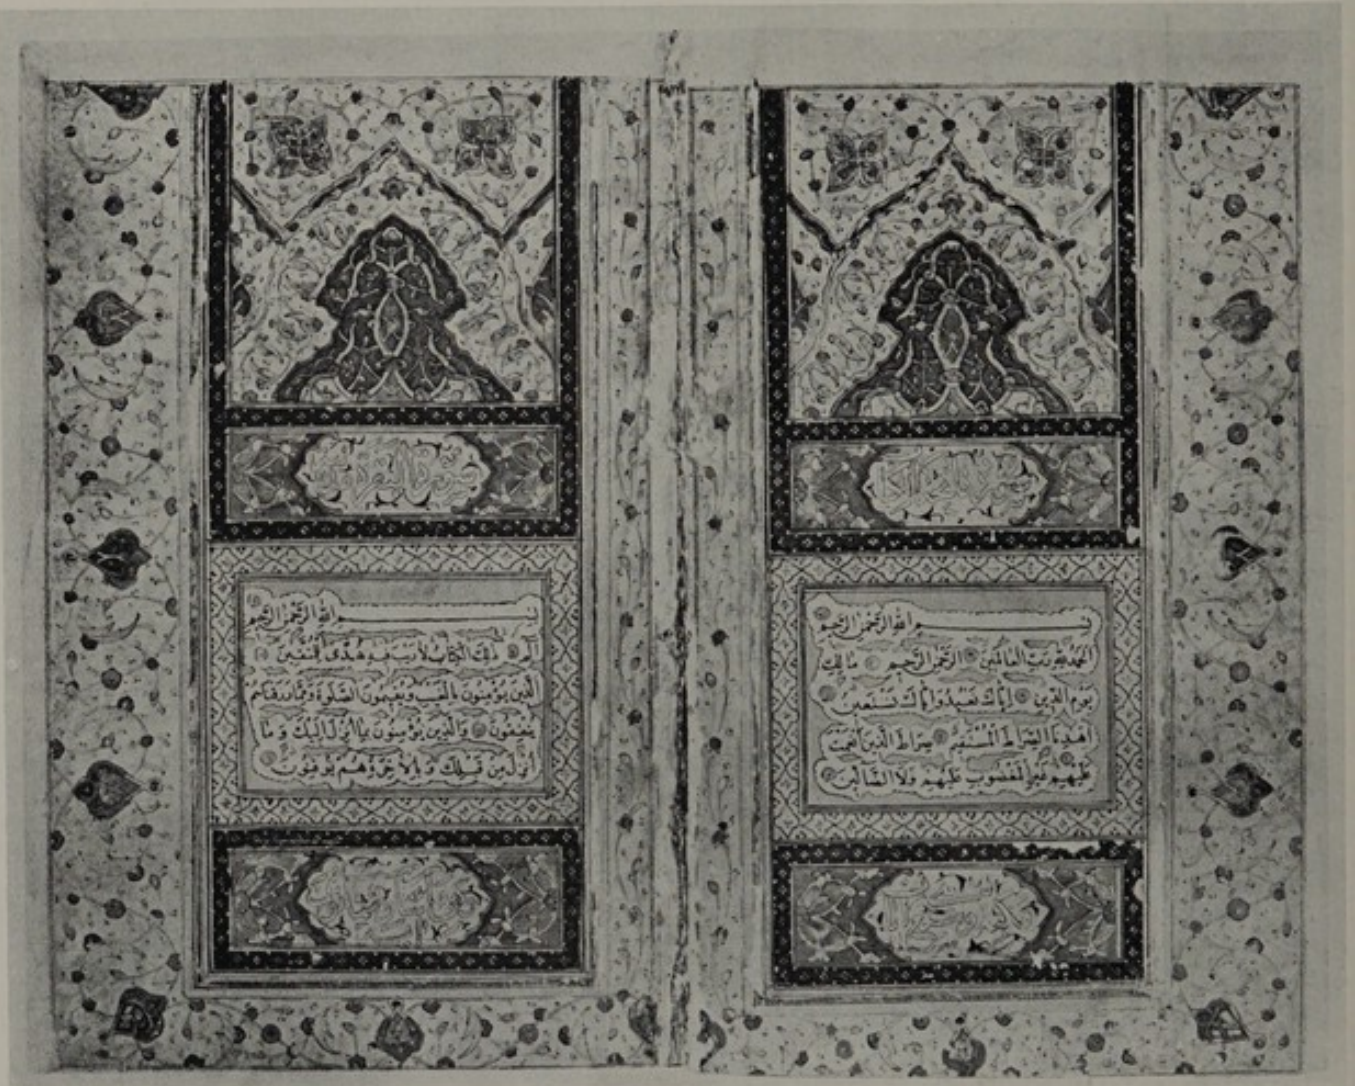 سورة فاتحة الكتاب
بسم الله الرحمن الرحيم
الحمد لله رب العالمين الرحمن الرحيم مالك
يوم الدين إياك نعبد وإياك نستعين
اهدنا الصراط المستقيم صراط الذين أنعمت
عليهم غير المغضوب عليهم ولا الضالين
سورة البقرة
بسم الله الرحمن الرحيم
الم ذلك الكتاب لا ريب فيه هدى للمتقين
الذين يؤمنون بالغيب ويقيمون الصلوة ومما رزقناهم
ينفقون والذين يؤمنون بما أنزل إليك وما
أنزل من قبلك وبالآخرة هم يوقنون